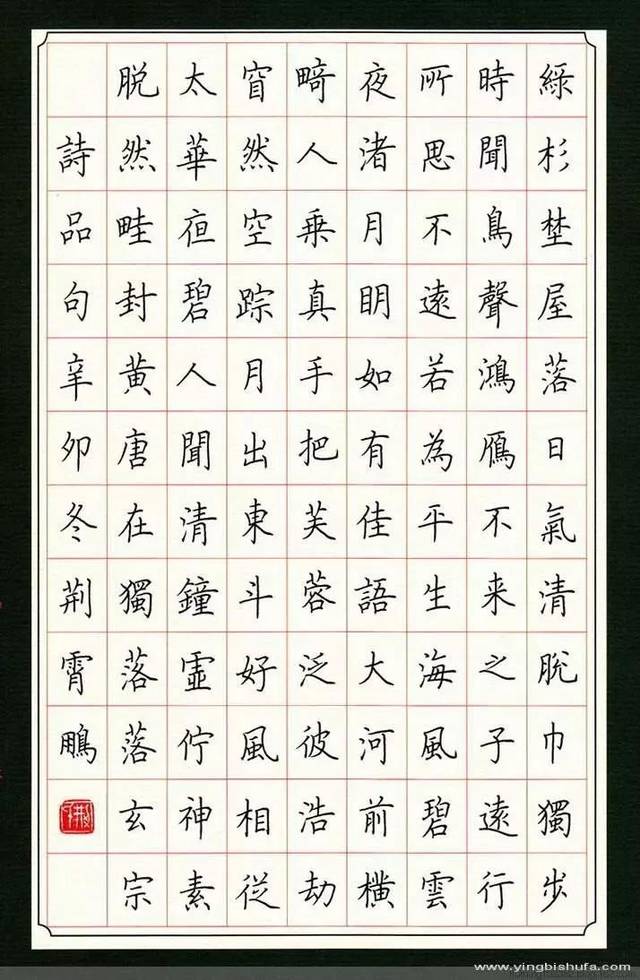 綠杉埜屋落日氣清脫巾獨步
時聞鳥聲鴻鴈不来之子遠行
所思不遠若為平生海風碧雲
夜渚月明如有佳語大河前橫
畸人乗真手把芙蓉泛彼浩劫
窅然空踪月出東斗好風相從
太華夜碧人聞清鐘虛佇神素
脫然畦封黃唐在獨落落玄宗
詩品句辛卯冬荆霄鵬
www.yingbishufa.com